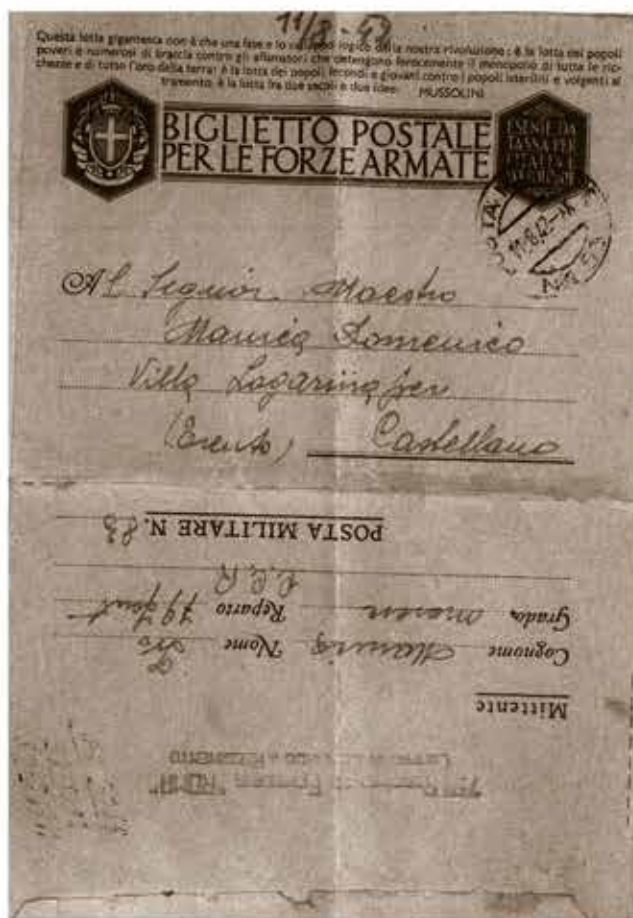 11/8-42
Questa lotta gigantesca non è che una fase e lo sviluppo logico della nostra rivoluzione; è la lotta dei popoli
poveri e numerosi di braccia contro gli affamatori che detengono ferocemente il monopolio di tutte le ric-
chezze e di tutto l'oro della terra; è la lotta dei popoli fecondi e giovani contro i popoli isteriliti e volgenti al
tramonto, è la lotta fra due secoli e due idee. MUSSOLINI
BIGLIETTO POSTALE
PER LE FORZE ARMATE
ESENTE DA
TASSA PER
11.8.42
Al Signor Maestro
Manica Domenico
Villa Lagarina per
(Trento) Castellano
POSTA MILITARE N. 83
Grado Reparto 79 Fant
Cognome Manica Nome Pio
Mittente